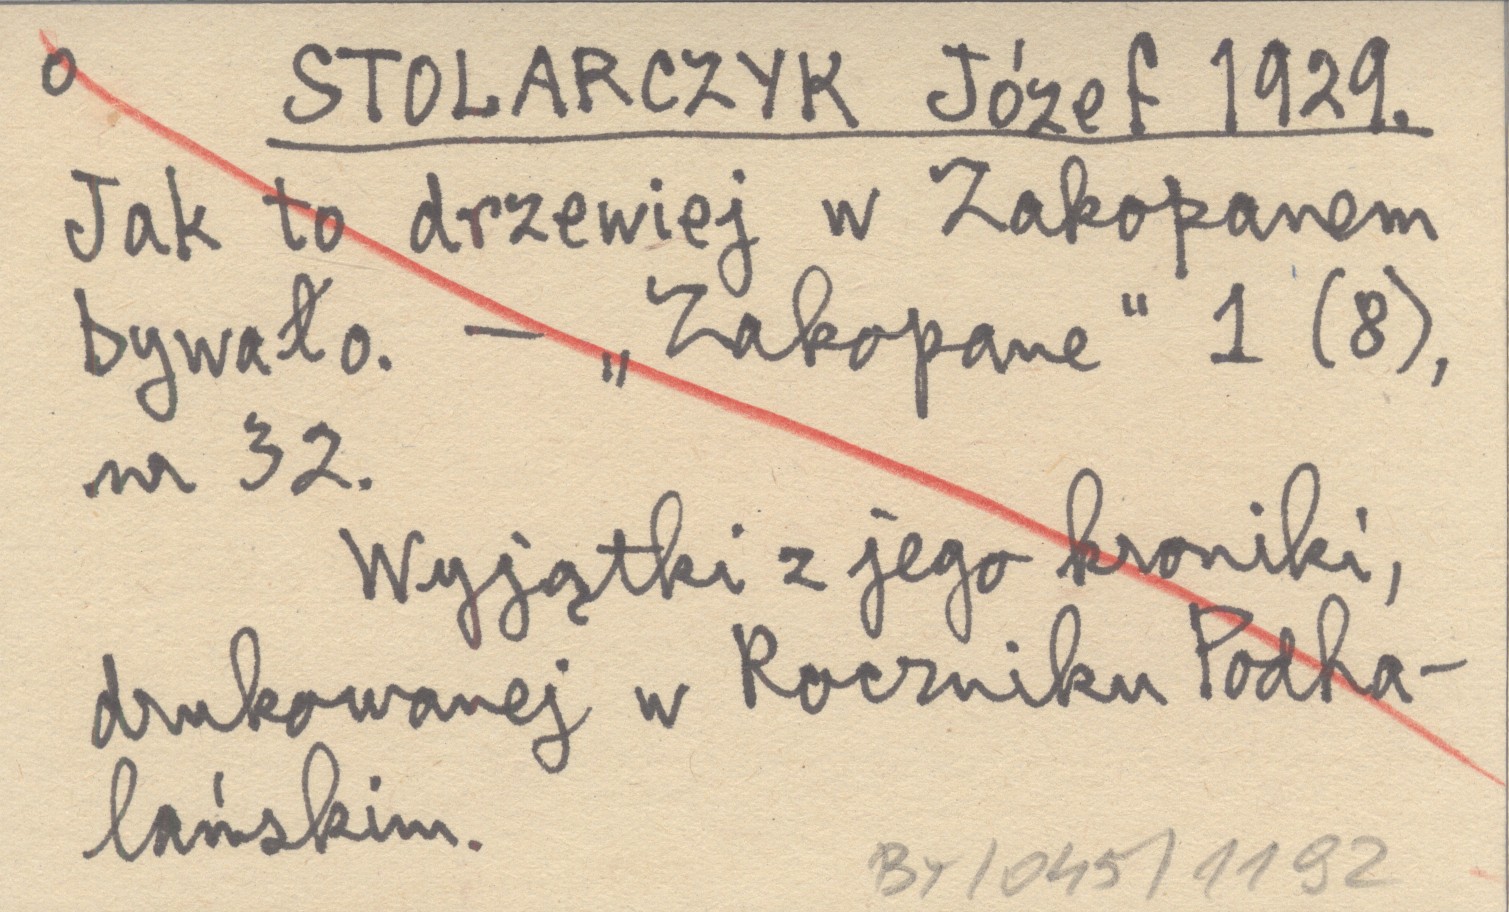 o STOLARCZYK Józef 1929.
Jak to drzewiej w Zakopanem
bywało. — „Zakopane" 1 (8),
nr 32.
Wyjątki z jego kroniki,
drukowanej w Roczniku Podha-
lańskim.
By/045/1192